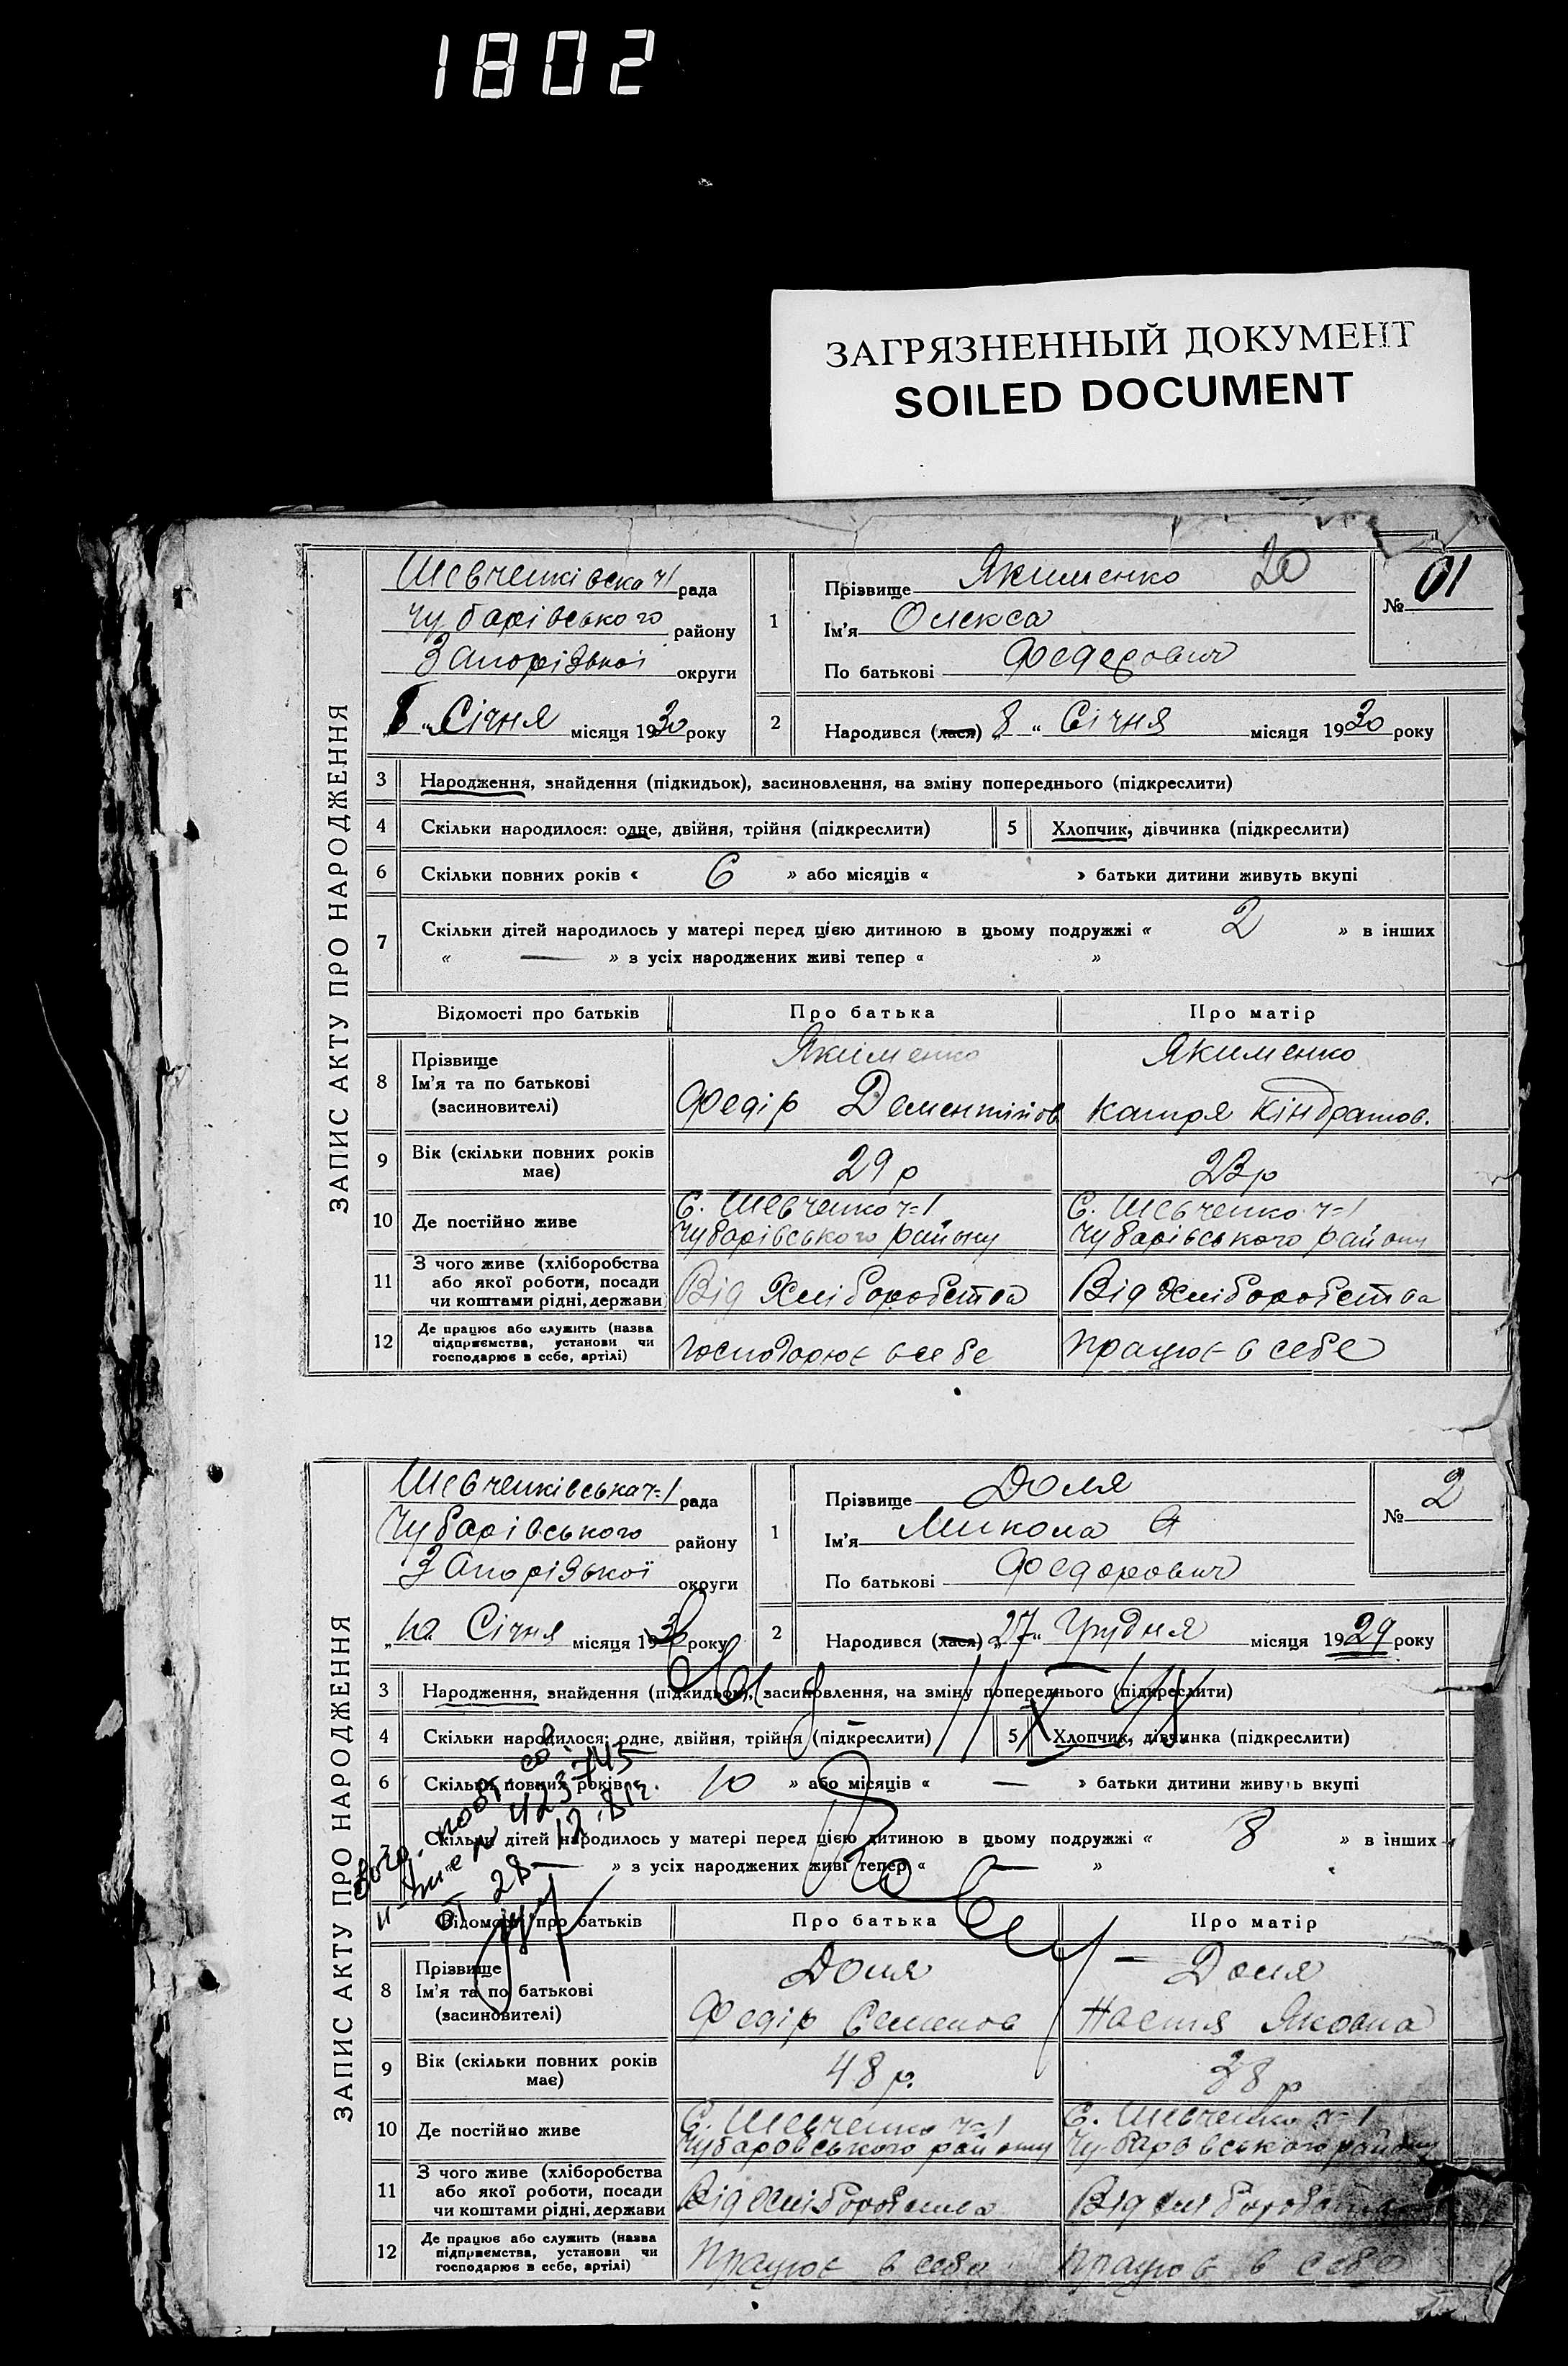 1802
ЗАГРЯЗНЕННЫЙ ДОКУМЕНТ
SOILED DOCUMENT
ЗАПИС АКТУ ПРО НАРОДЖЕННЯ
Шевченківська ч1 рада
Чубарівського району
Запорізької округи
8 " Січня місяця 1930 року
1
Прізвище Якименко 20
Ім'я Олекса
По батькові Федерович
№ 01
2
Народився (лася) 8 " Січня місяця 1930 року
3 Народження, знайдення (підкидьок), засиновлення, на зміну попереднього (підкреслити)
4 Скільки народилося: одне, двійня, трійня (підкреслити) 5 Хлопчик, дівчинка (підкреслити)
6 Скільки повних років « 6 » або місяців « » батьки дитини живуть вкупі
7 Скільки дітей народилось у матері перед цією дитиною в цьому подружжі « 2 » в інших
« — » з усіх народжених живі тепер « »
Відомості про батьків Про батька Про матір
8 Прізвище Якименко Якименко
Ім'я та по батькові
(засиновителі) Федір Дементійов Катря Кіндратов.
9 Вік (скільки повних років має) 29 р 23 р
10 Де постійно живе С. Шевченко ч=1 С. Шевченко ч=1
Чубарівського району Чубарівського району
11 З чого живе (хліборобства
або якої роботи, посади
чи коштами рідні, держави Від Хліборобства Від Хліборобства
12 Де працює або служить (назва
підприємства, установи чи
господарює в себе, артілі) Господорює в себе працює в себе
ЗАПИС АКТУ ПРО НАРОДЖЕННЯ
Шевченківська ч=1 рада
Чубарівського району
Запорізької округи
"10" Січня місяця 1930 року
1
Прізвище Доля
Ім'я Микола
По батькові Федорович
№ 2
2
Народився (лася) "27" Грудня місяця 1929 року
3 Народження, знайдення (підкидьок), засиновлення, на зміну попереднього (підкреслити)
4 Скільки народилося: одне, двійня, трійня (підкреслити) 5 Хлопчик, дівчинка (підкреслити)
6 Скільки повних років « 10 » або місяців « — » батьки дитини живуть вкупі
7 Скільки дітей народилось у матері перед цією дитиною в цьому подружжі « 8 » в інших
« — » з усіх народжених живі тепер « — »
Відомості про батьків Про батька Про матір
8 Прізвище Доля Доля
Ім'я та по батькові
(засиновителі) Федір Семенов Настя Яковна
9 Вік (скільки повних років має) 48 р. 38 р
10 Де постійно живе С. Шевченко ч=1 С. Шевченко ч=1
Чубаровського району Чубаровського району
11 З чого живе (хліборобства
або якої роботи, посади
чи коштами рідні, держави Від Хліборобства Від хліборобства
12 Де працює або служить (назва
підприємства, установи чи
господарює в себе, артілі) працює в себе працює в себе